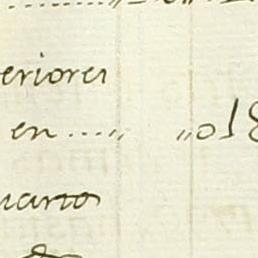 eriores
en ....,, ,,018
uarto